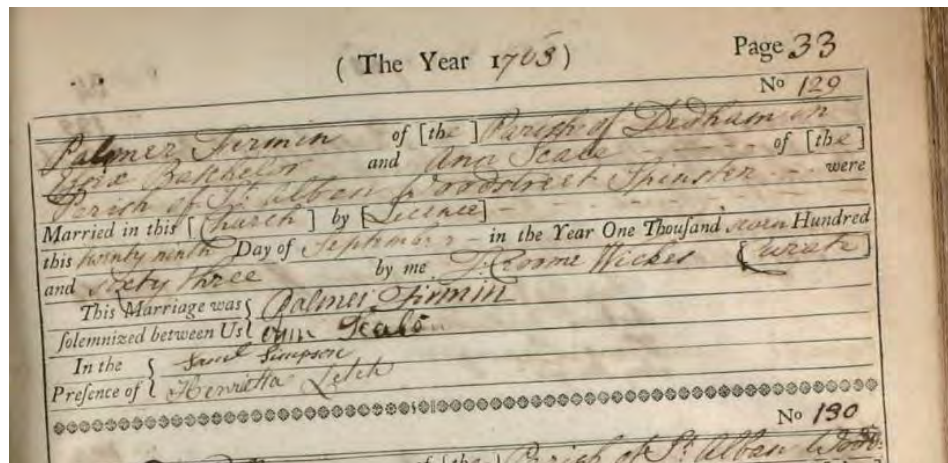 ( The Year 1763 ) Page 33
No 129
Palmer Firmin of [the ] Parish of Dedham in
Essex Batchelor and Ann Scale of [the ]
Parish of St. Alban Woodstreet Spinster were
Married in this [Church] by [Licence]
this twenty ninth Day of September in the Year One Thousand seven Hundred
and sixty three by me J. Roome Wickes [Curate]
This Marriage was { Palmer Firmin
solemnized between Us { Ann
In the { Saml Simpson
Presence of { Henrietta
No 130
of [the ] Parish of St. Alban Wood